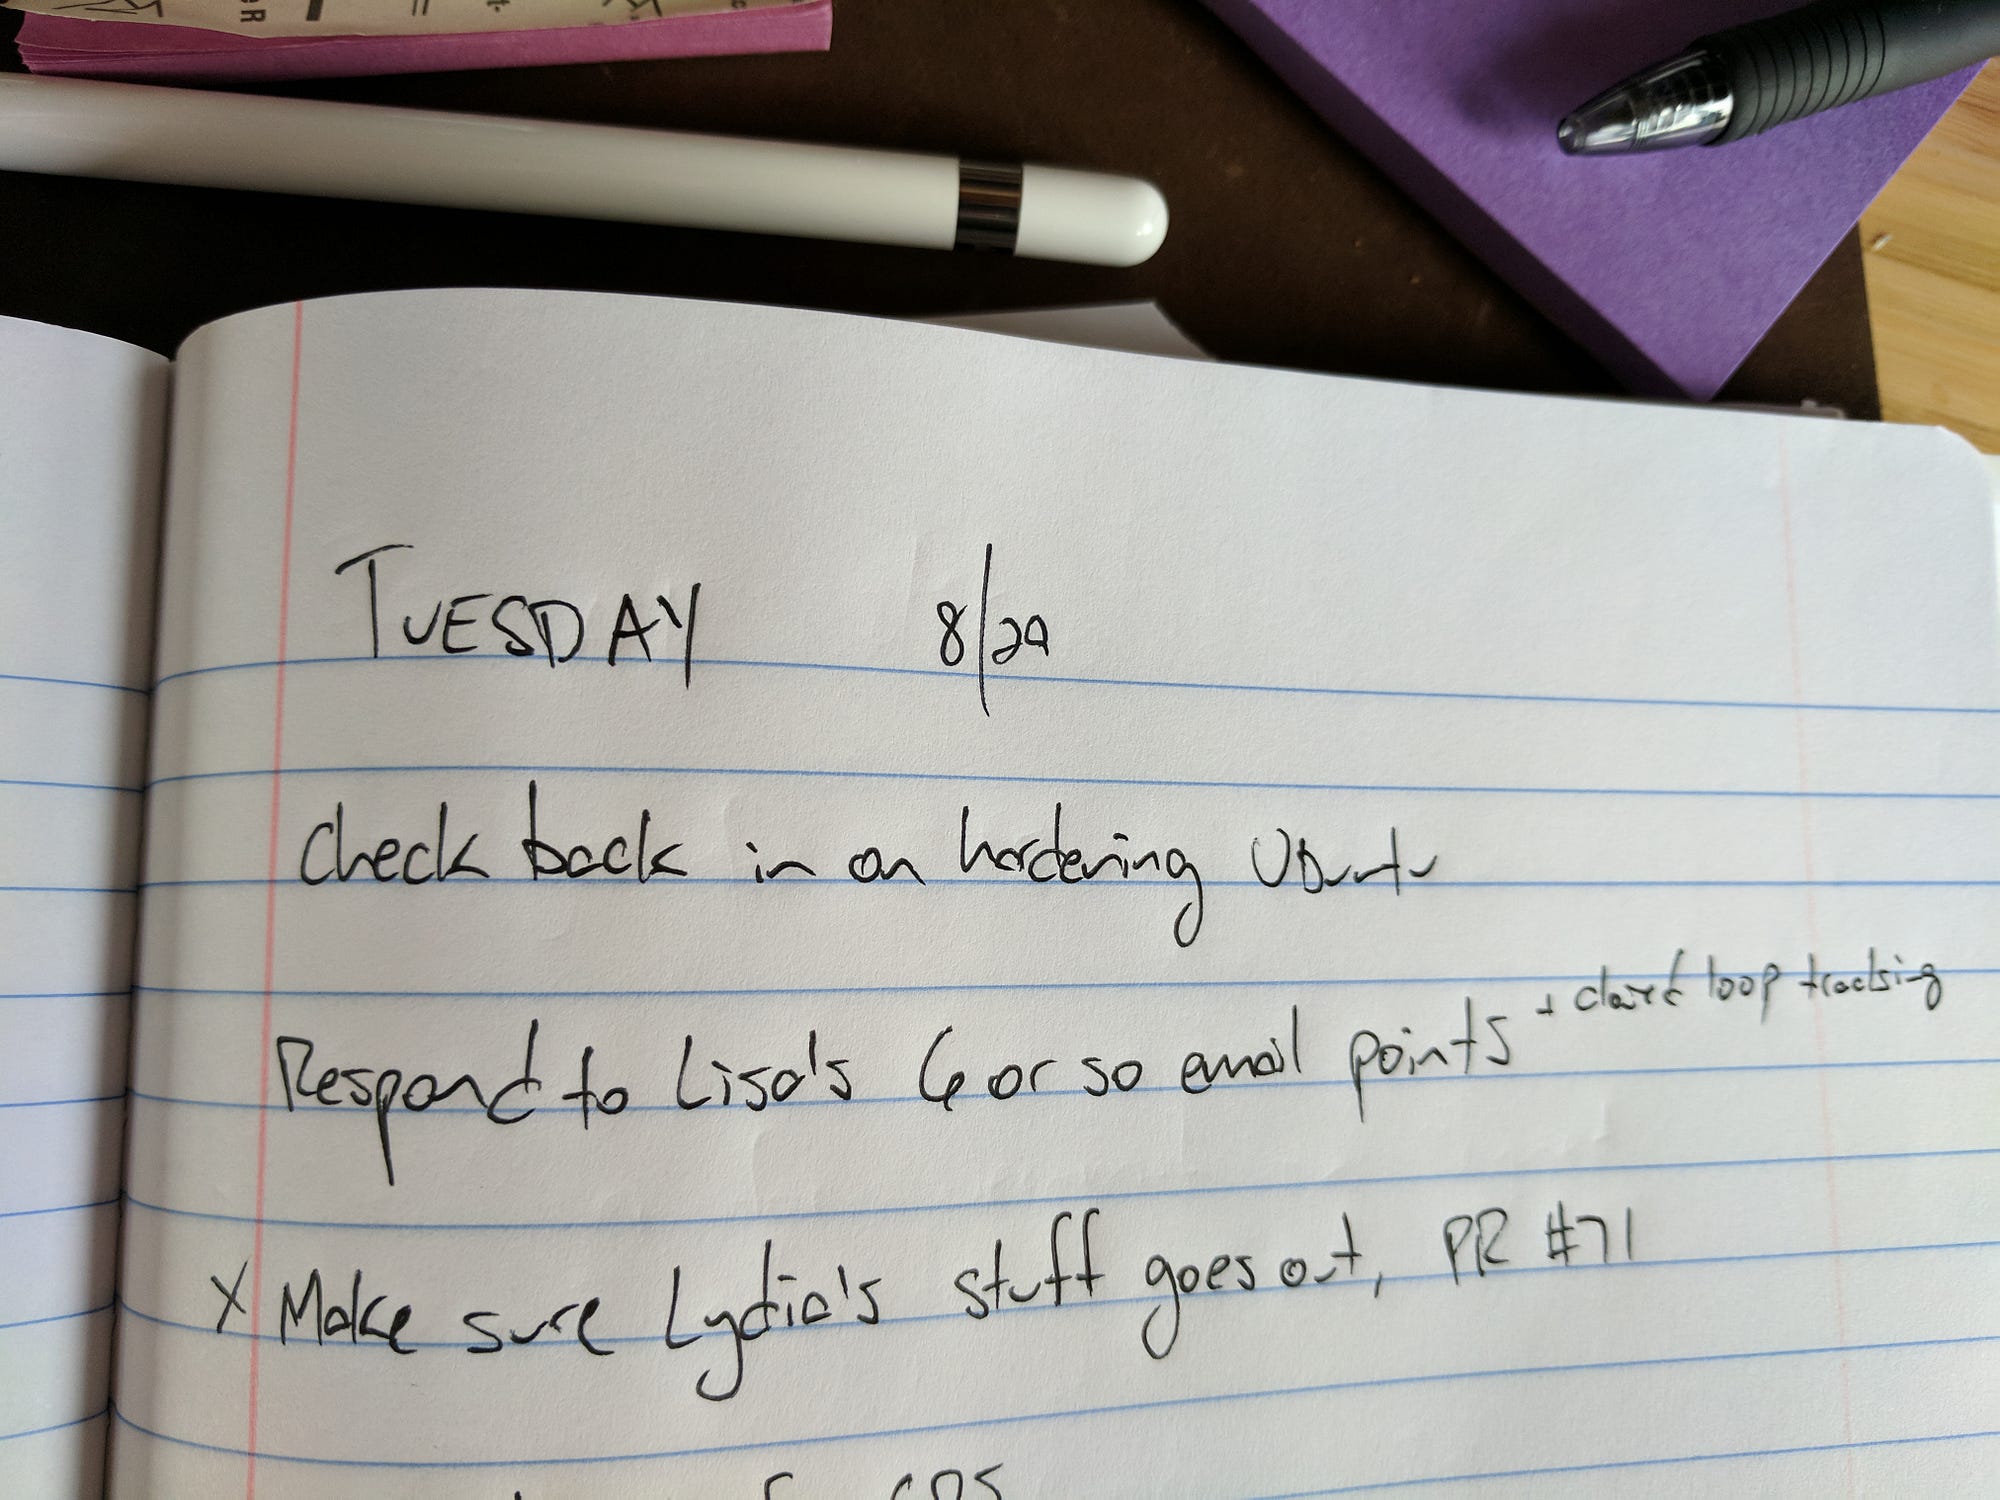 TUESDAY 8/29
Check back in on hardening Ubuntu
+ closed loop tracking
Respond to Lisa's 6 or so email points
X Make sure Lydia's stuff goes out, PR #71